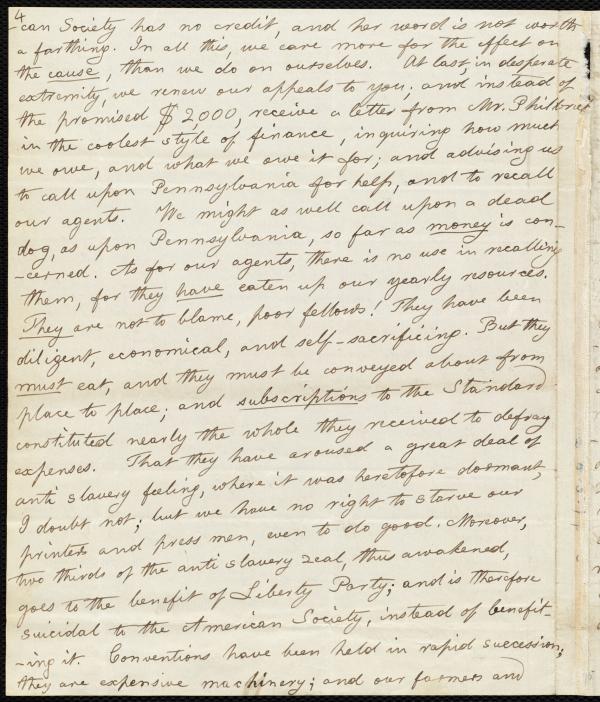 4
-can Society has no credit, and her word is not worth
a farthing. In all this, we care more for the effect on
the cause, than we do on ourselves. At last, in desperate
extremity, we renew our appeals to you; and instead of
the promised $2,000, receive a letter from Mr. Philbrick
in the coolest style of finance, inquiring how much
we owe, and what we owe it for; and advising us
to call upon Pennsylvania for help, and to recall
our agents. We might as well call upon a dead
dog, as upon Pennsylvania, so far as money is con-
-cerned. As for our agents, there is no use in recalling
them, for they have eaten up our yearly resources.
They are not to blame, poor fellows! They have been
diligent, economical, and self-sacrificing. But they
must eat, and they must be conveyed about from
place to place; and subscriptions to the Standard
constituted nearly the whole they received to defray
expenses. That they have aroused a great deal of
anti slavery feeling, where it was heretofore dormant,
I doubt not; but we have no right to starve our
printers and press men, even to do good. Moreover,
two thirds of the anti slavery zeal, thus awakened,
goes to the benefit of Liberty Party; and is therefore
suicidal to the American Society, instead of benefit-
-ing it. Conventions have been held in rapid succession;
they are expensive machinery; and our farmers and